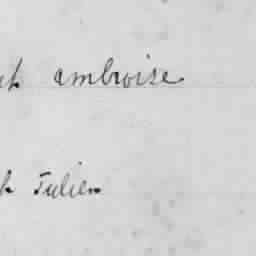 ambroise
Julien